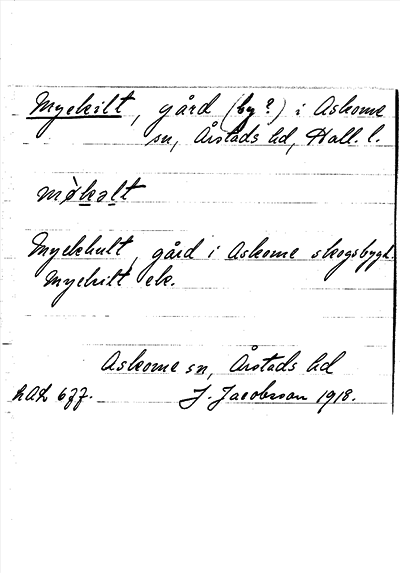 Myckilt, gård (by?) i Askome
sn, Årstads hd, Hall. l.
mø̀kalt
Myckhult, gård i Askome skogsbygd.
Myckilt ek.
Askome sn, Årstads hd
LAL 677. J. Jacobsson 1918.